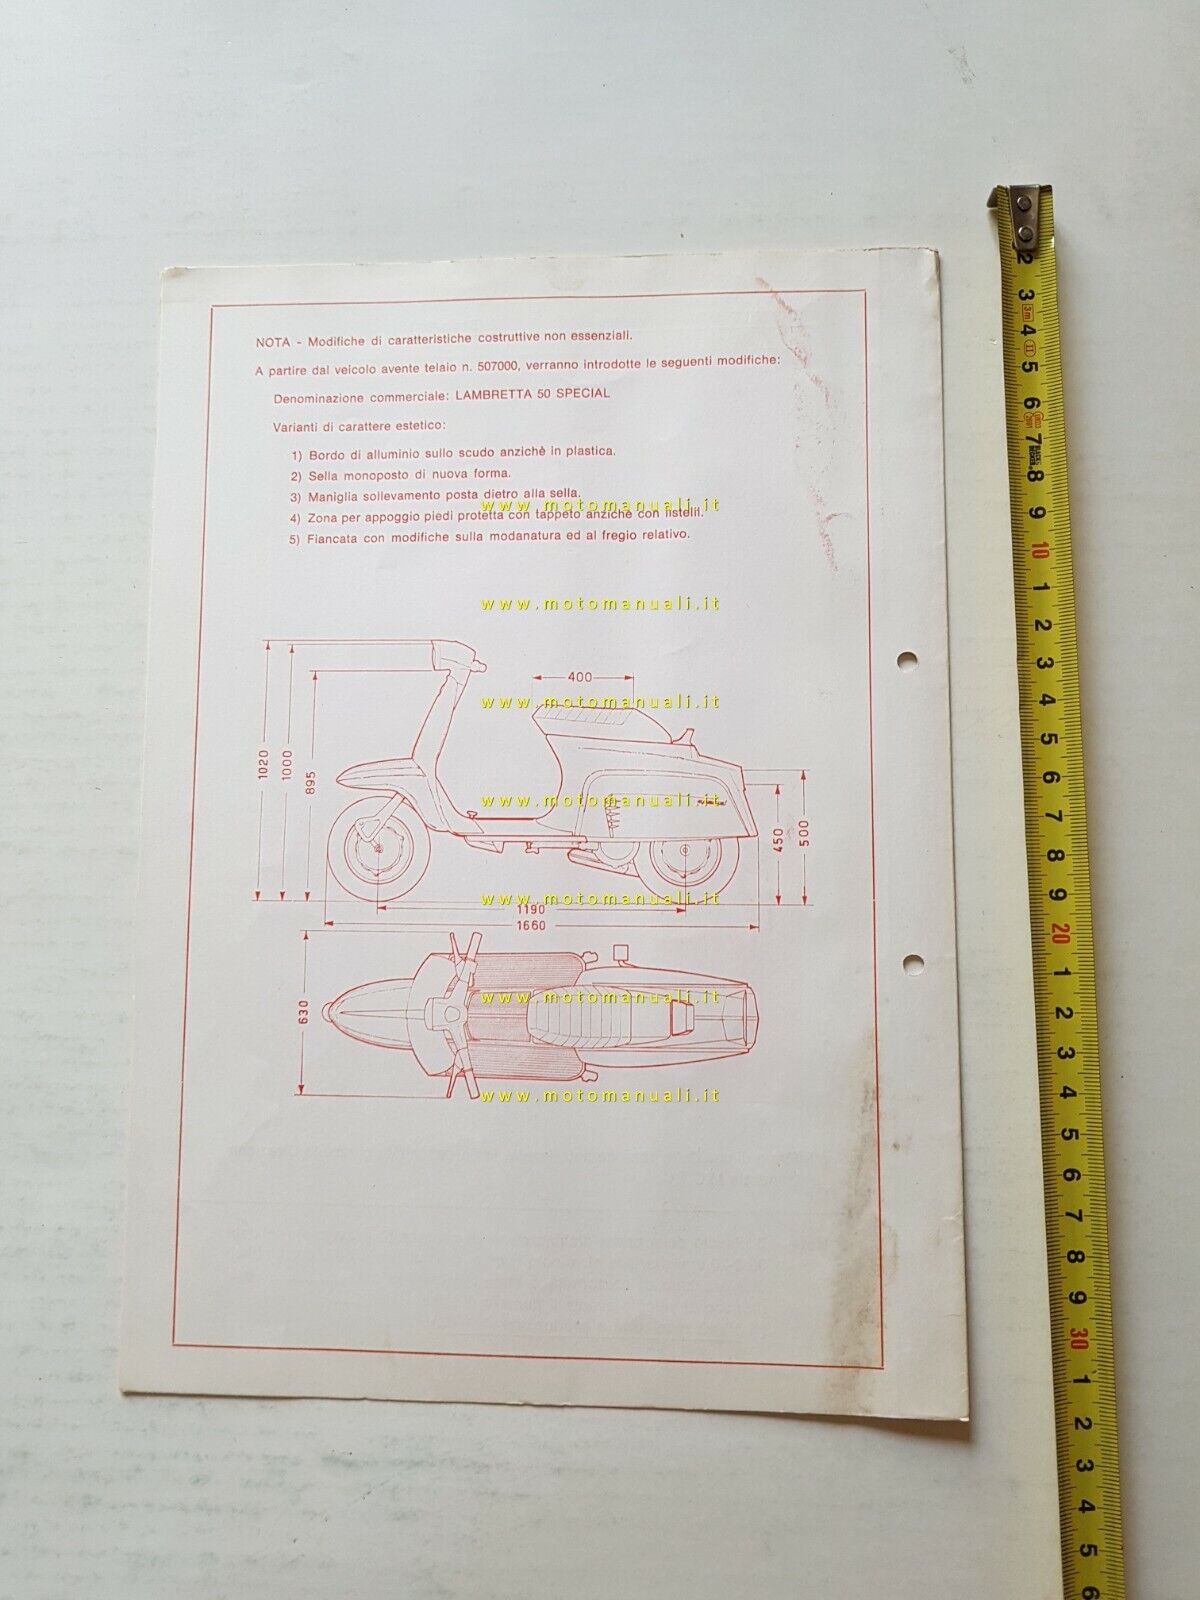 NOTA - Modifiche di caratteristiche costruttive non essenziali.
A partire dal veicolo avente telaio n. 507000, verranno introdotte le seguenti modifiche:
Denominazione commerciale: LAMBRETTA 50 SPECIAL
Varianti di carattere estetico:
1) Bordo di alluminio sullo scudo anzichè in plastica.
2) Sella monoposto di nuova forma.
3) Maniglia sollevamento posta dietro alla sella.
www.motomanuali.it
4) Zona per appoggio piedi protetta con tappeto anzichè con listelli.
5) Fiancata con modifiche sulla modanatura ed al fregio relativo.
www.motomanuali.it
400
www.motomanuali.it
1020
1000
895
www.motomanuali.it
450
500
www.motomanuali.it
1190
1660
630
www.motomanuali.it
www.motomanuali.it
2
3
3m
4
II
5
6
7
8
9
10
1
2
3
4
5
6
7
8
9
20
1
2
3
4
5
6
7
8
9
30
1
2
3
4
5
6